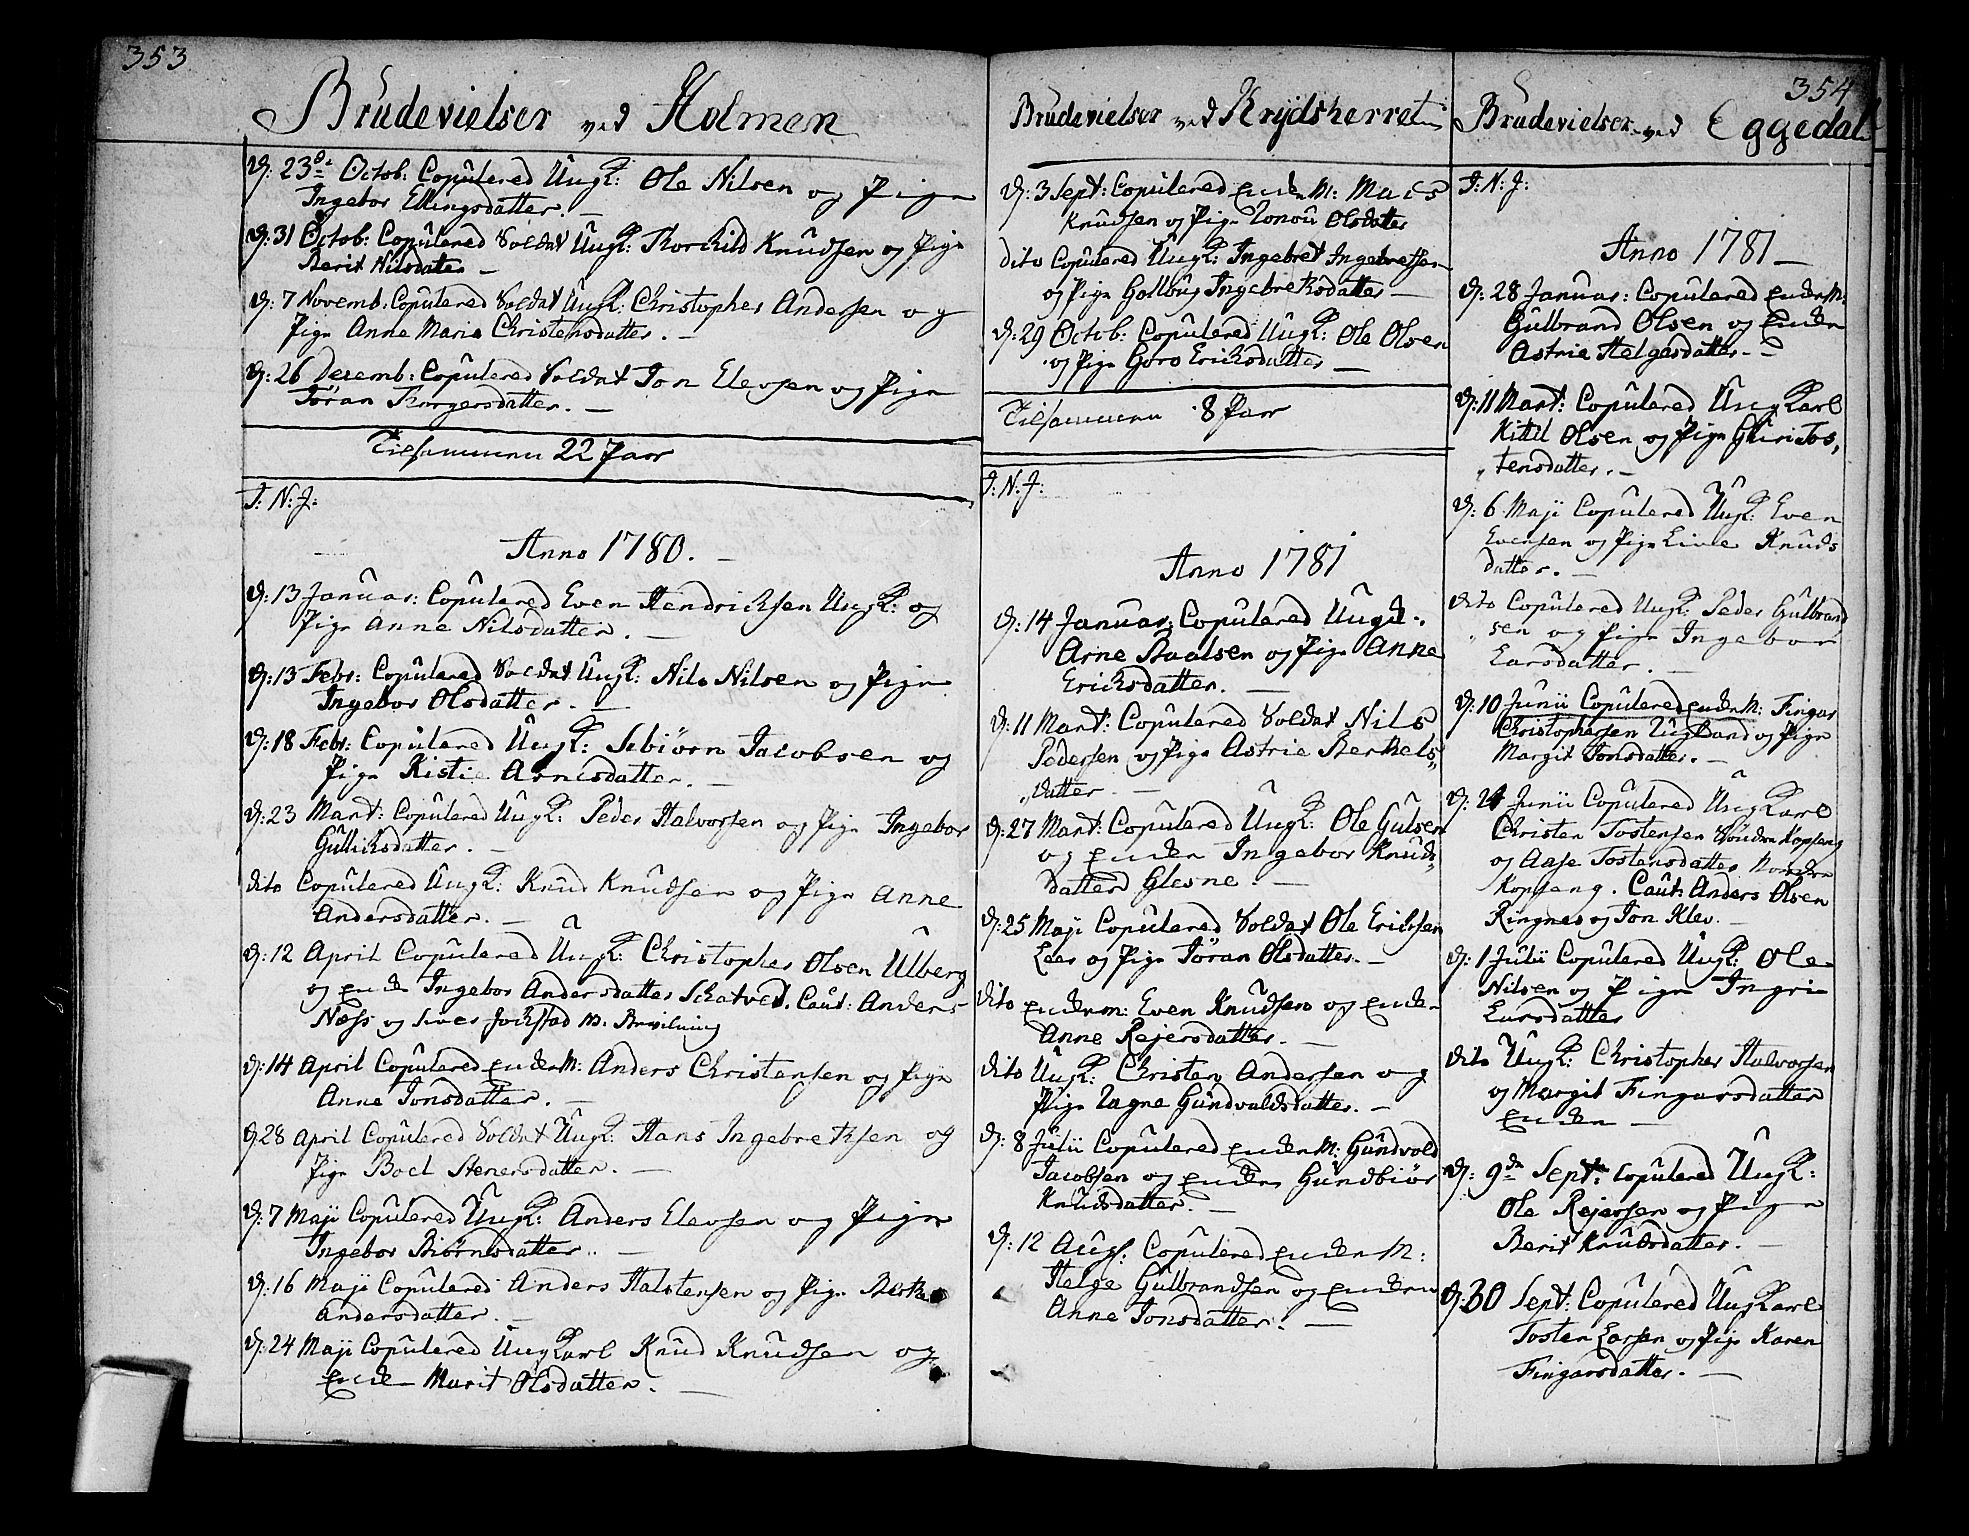 353
Brudevielser ved Holmen
d: 23de Octob: Copulered Ungk: Ole Nilsen og Pige
Ingebor Ellingsdatter. —
d: 31 Octob: Copulered Soldat Ungk: Thorchild Knudsen og Pige
Berit Nilsdatter —
d: 7 Novemb. Copulered Soldat Ungk: Christopher Andersen og
Pige Anne Marie Christensdatter. —
d: 26 Decemb: Copulered Soldat Jon Elevsen og Pige
Jöran Thorgersdatter. —
Tilsammen 22 Paar
I: N: J:
Anno 1780. —
d: 13 Januar: Copulered Even Hendrichsen Ungk: og
Pige Anne Nilsdatter. —
d: 13 Febr: Copulered Soldat Ungk: Nils Nilsen og Pige
Ingebor Olsdatter. —
d: 18 Febr: Copulered Ungk: Sebiörn Jacobsen og
Pige Kistie Arnesdatter. —
d: 23 Mart: Copulered Ungk: Peder Halvorsen og Pige Ingebor
Gulliksdatter. —
dito Copulered Ungk: Knud Knudsen og Pige Anne
Andersdatter. —
d: 12 April Copulered Ungk: Christopher Olsen Ulberg
og Enke Ingebor Andersdatter Skatvet. Caut: Anders
Næss og Iver Jokstad m. Bevilning
d: 14 April Copulered Enkem: Anders Christensen og Pige
Anne Jonsdatter. —
d: 28 April Copulered Soldat Ungk: Hans Ingebretsen og
Pige Boel Stenersdatter. —
d: 7 Maji Copulered Ungk: Anders Elevsen og Pige
Ingebor Biörnsdatter. —
d: 16 Maji Copulered Anders Halstensen og Pige
Andersdatter. —
d: 24 Maji Copulered Ungkarl Knud Knudsen og
Enke Marit Olsdatter. —
Brudevielser ved Krydsherret
d: 3 Sept: Copulered Enke M: Mads
Knudsen og Pige Olsdatter
dito Copulered Ungk: Ingebret Ingebretsen
og Pige Golbug Ingebretsdatter —
d: 29 Octob: Copulered Ungk: Ole Olsen
og Pige Goro Ericksdatter —
Tilsammen 8 Paar
I: N: J:
Anno 1781
d: 14 Januar: Copulered Ungk:
Arne Paalsen og Pige Anne
Ericksdatter. —
d: 11 Mart: Copulered Soldat Nils
Pedersen og Pige Astrie Berthels„
„datter —
d: 27 Mart: Copulered Ungk: Ole Gulsen
og Enken Ingebor Knuds„
datter Glesne. —
d: 25 Maji Copulered Soldat Ole Ericksen
Leer og Pige Jöran Olsdatter. —
dito Enkem: Even Knudsen og Enken
Anne Rejersdatter. —
dito Ungk: Christen Andersen og
Pige Lagne Gundvaldsdatter. —
d: 8 Julii Copulered Enkem: Gundvold
Jacobsen og Enken Gundbiör
Knudsdatter. —
d: 12 Aug: Copulered Enkem:
Helge Gulbrandsen og Enken
Anne Jonsdatter. —
354
Brudevielser ved Eggedal
I: N: J:
Anno 1781 —
d: 28 Januar: Copulered Enkem:
Gulbrand Olsen og Enken
Astrie Helgesdatter. —
d: 11 Mart: Copulered Ungkarl
Kittil Olsen og Pige Guri Tos„
„tensdatter. —
d: 6 Maji Copulered Ungk: Even
Evensen og Pige Live Knuds
datter. —
dito Copulered Ungk: Peder Gulbrand
„sen og Pige Ingebor
Larsdatter. —
d: 10 Junii Copulered Enkem: Fingar
Christophersen Ugland og Pige
Margit Jonsdatter. —
d: 24 Junii Copulered Ungkarl
Christen Tostensen Söndre Kopseng
og Aase Tostensdatter Nordre
Kopseng. Caut: Anders Olsen
Ringnes og Jon Klev. —
d: 1 Julii Copulered Ungk: Ole
Nilsen og Pige Ingri
Larsdatter
dito Ungk: Christopher Halvorsen
og Margit Fingarsdatter
Enke —
d: 9de Sept: Copulered Ungk:
Ole Rejersen og Pige
Berit Knudsdatter. —
d: 30 Sept: Copulered Ungkarl
Tosten Larsen og Pige Karen
Fingarsdatter. —